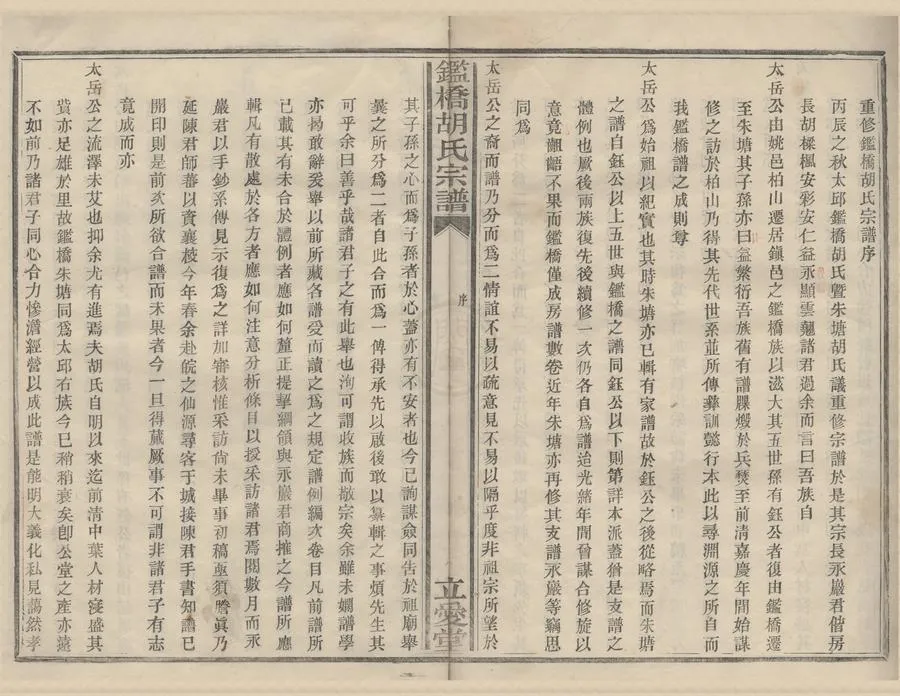 重修鑑橋胡氏宗譜序
丙辰之秋太邱鑑橋胡氏暨朱塘胡氏議重修宗譜於是其宗長永巖君偕房
長胡樑楓安彩安仁益永顯雲翹諸君過余而言曰吾族自
太岳公由姚邑柏山遷居鎭邑之鑑橋族以滋大其五世孫有鈺公者復由鑑橋遷
至朱塘其子孫亦曰益繁衍吾族舊有譜牒燬於兵燹至前清嘉慶年間始謀
修之訪於柏山乃得其先代世系並所傳彝訓懿行本此以尋淵源之所自而
我鑑橋譜之成則尊
太岳公爲始祖以紀實也其時朱塘亦已輯有家譜故於鈺公之後從略焉而朱塘
之譜自鈺公以上五世與鑑橋之譜同鈺公以下則第詳本派蓋猶是支譜之
體例也厥後兩族復先後續修一次仍各自爲譜迨光緒年間曾謀合修旋以
意竟齟齬不果而鑑橋僅成房譜數卷近年朱塘亦再修其支譜永巖等竊思
同爲
太岳公之裔而譜乃分而爲二情誼不易以疏意見不易以隔乎度非祖宗所望於
鑑橋胡氏宗譜
序
立愛堂
其子孫之心而爲子孫者於心蓋亦有不安者也今已詢謀僉同告於祖廟舉
曩之所分爲二者自此合而爲一俾得承先以啟後敢以纂輯之事煩先生其
可乎余曰善乎哉諸君子之有此舉也洵可謂收族而敬宗矣余雖未嫻譜學
亦曷敢辭爰舉以前所藏各譜受而讀之爲之規定譜例編次卷目凡前譜所
已載其有未合於體例者應如何釐正提挈綱領與永巖君商搉之今譜所應
輯凡有散處於各方者應如何注意分析條目以授采訪諸君焉閱數月而永
巖君以手鈔系傳見示復爲之詳加審核惟采訪尚未畢事初稿亟須謄眞乃
延陳君師蕃以資襄校今年春余赴皖之仙源尋客于城接陳君手書知譜已
開印則是前次所欲合譜而未果者今一旦得蕆厥事不可謂非諸君子有志
竟成而亦
太岳公之流澤未艾也抑余尤有進焉夫胡氏自明以來迄前清中葉人材寖盛其
貲亦足雄於里故鑑橋朱塘同爲太邱右族今已稍稍衰矣卽公堂之產亦遠
不如前乃諸君子同心合力慘澹經營以成此譜是能明大義化私見藹然孝